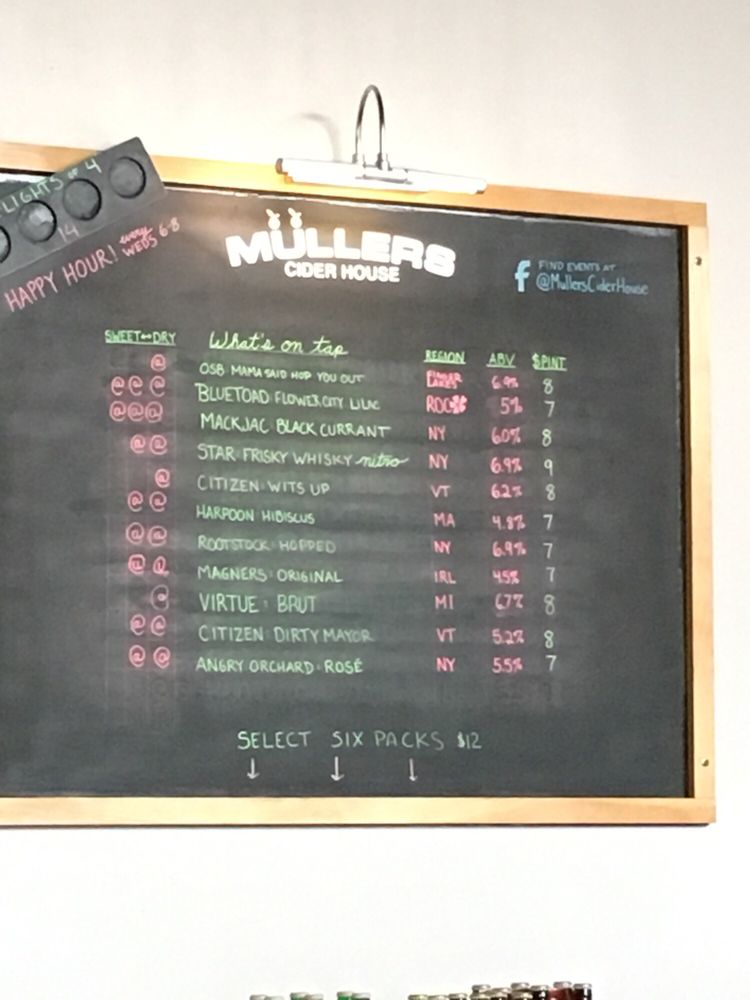 LIGHTS OF 4
14
HAPPY HOUR! every WEDS 6-8
MÜLLERS
CIDER HOUSE
FIND EVENTS AT
@MullersCiderHouse
SWEET↔DRY What's on tap REGION ABV $PINT
@ OSB MAMA SAID HOP YOU OUT FINGER LAKES 6.9% 8
@ @ @ BLUETOAD: FLOWER CITY LILAC ROC 5% 7
@ @ @ MACKJAC BLACK CURRANT NY 6.0% 8
@ @ STAR: FRISKY WHISKY nitro NY 6.9% 9
@ CITIZEN: WITS UP VT 6.2% 8
@ @ HARPOON HIBISCUS MA 4.8% 7
@ @ ROOTSTOCK: HOPPED NY 6.9% 7
@ @ MAGNERS: ORIGINAL IRL 4.5% 7
@ VIRTUE: BRUT MI 6.7% 8
@ @ CITIZEN: DIRTY MAYOR VT 5.2% 8
@ @ ANGRY ORCHARD: ROSÉ NY 5.5% 7
SELECT SIX PACKS $12
↓ ↓ ↓